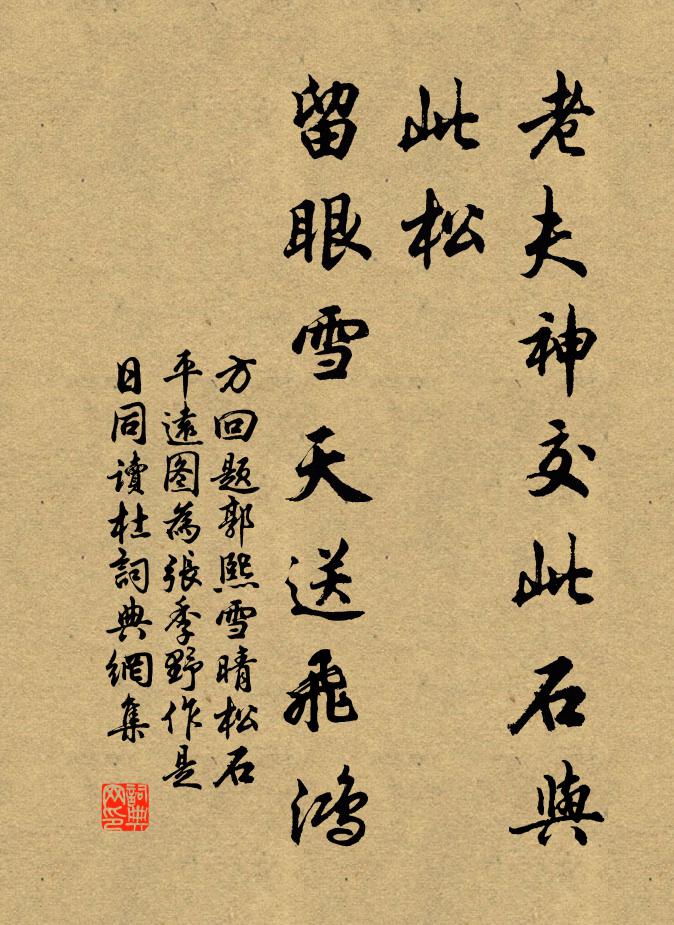 老夫神交此石與
此松
留眼雪天送飛鴻
方回題郭熙雪晴松石
平遠图為張季野作是
日同讀杜詞典網集
詞典網印